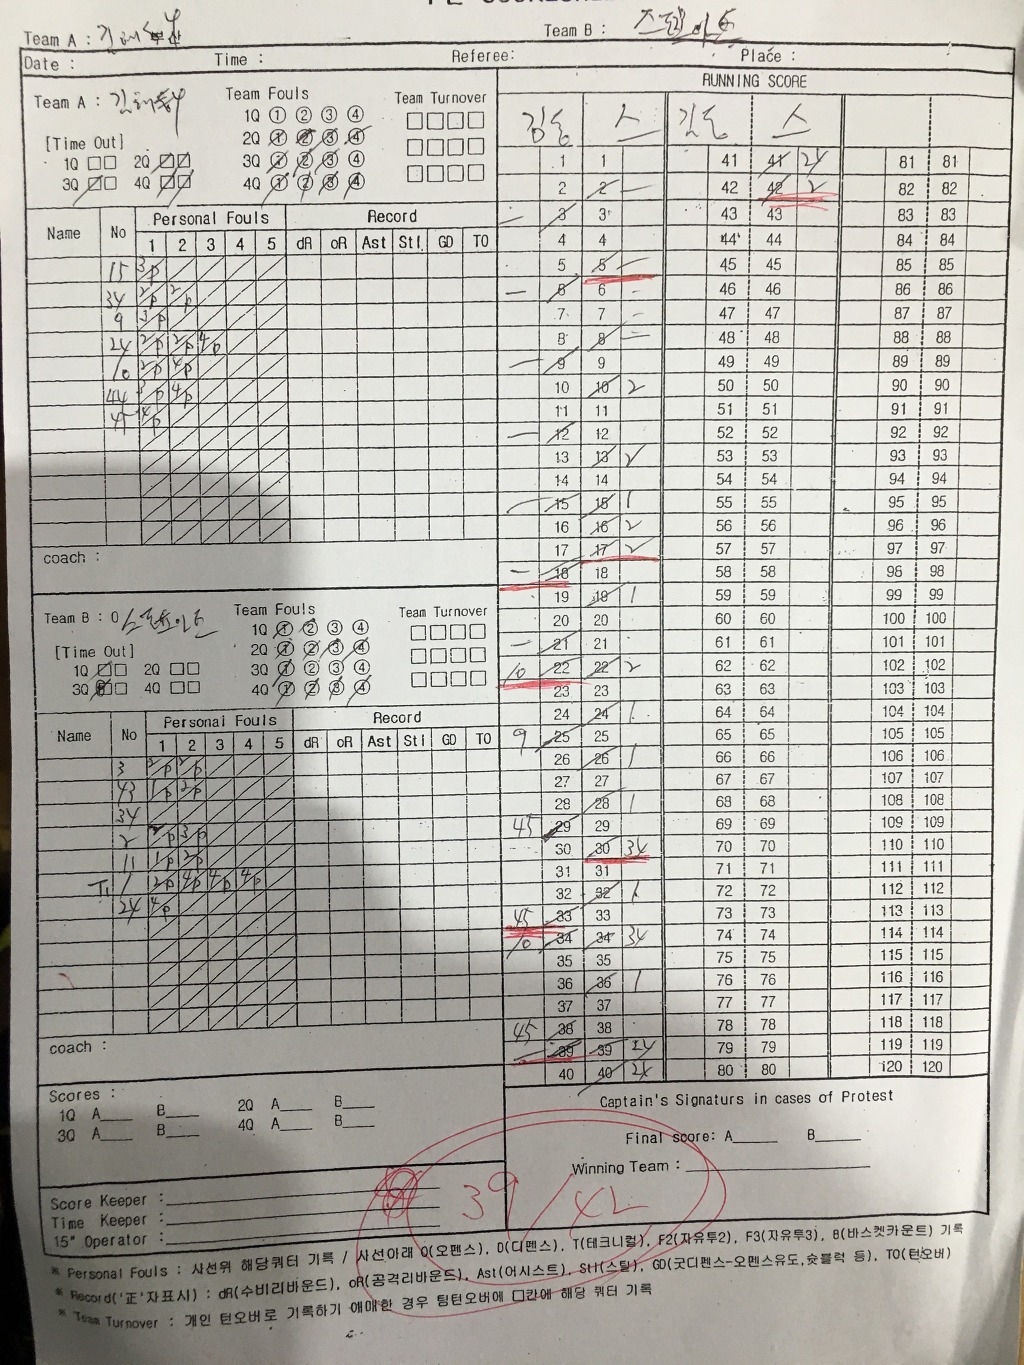 Team A :
Team B : 스프라이트
Date : Time : Referee: Place :
RUNNING SCORE
Team A :
Team Fouls
Team Turnover
1Q ① ② ③ ④
[Time Out]
2Q ① ② ③ ④
1Q □□ 2Q □□
3Q ① ② ③ ④
3Q □□ 4Q □□
4Q ① ② ③ ④
Name No Personal Fouls Record
1 2 3 4 5 dR oR Ast Stl GD TO
15 3/p
34 2/p 2/p
9 3/p
24 2/p 2/p
10 2/p 4/p
44 4/p
45 4/p
coach :
Team B :
Team Fouls
Team Turnover
1Q ① ② ③ ④
[Time Out]
2Q ① ② ③ ④
1Q □□ 2Q □□
3Q ① ② ③ ④
3Q □□ 4Q □□
4Q ① ② ③ ④
Name No Personal Fouls Record
1 2 3 4 5 dR oR Ast Stl GD TO
3
43 1/p 2/p
34
2 3/p
11 1/p 2/p
1 2/p 4/p 4/p 4/p
24 4/p
coach :
스 스
1 1 41 41 24 81 81
2 2 42 42 2 82 82
3 3 43 43 83 83
4 4 44 44 84 84
5 5 45 45 85 85
6 6 46 46 86 86
7 7 47 47 87 87
8 8 48 48 88 88
9 9 49 49 89 89
10 10 2 50 50 90 90
11 11 51 51 91 91
12 12 52 52 92 92
13 13 2 53 53 93 93
14 14 54 54 94 94
15 15 1 55 55 95 95
16 16 2 56 56 96 96
17 17 2 57 57 97 97
18 18 58 58 98 98
19 19 1 59 59 99 99
20 20 60 60 100 100
21 21 61 61 101 101
10 22 22 2 62 62 102 102
23 23 63 63 103 103
24 24 1 64 64 104 104
9 25 25 65 65 105 105
26 26 1 66 66 106 106
27 27 67 67 107 107
28 28 1 68 68 108 108
45 29 29 69 69 109 109
30 30 34 70 70 110 110
31 31 71 71 111 111
32 32 1 72 72 112 112
45 33 33 73 73 113 113
10 34 34 34 74 74 114 114
35 35 75 75 115 115
36 36 1 76 76 116 116
37 37 77 77 117 117
45 38 38 78 78 118 118
39 39 24 79 79 119 119
40 40 24 80 80 120 120
Scores :
1Q A____ B____ 2Q A____ B____
3Q A____ B____ 4Q A____ B____
Captain's Signaturs in cases of Protest
Final score: A_____ B_____
Winning Team :
39/42
Score Keeper :
Time Keeper :
15" Operator :
* Personal Fouls : 사선위 해당쿼터 기록 / 사선아래 O(오펜스), D(디펜스), T(테크니컬), F2(자유투2), F3(자유투3), B(바스켓카운트) 기록
* Record('正'자표시) : dR(수비리바운드), oR(공격리바운드), Ast(어시스트), Stl(스틸), GD(굿디펜스-오펜스유도,슛블럭 등), TO(턴오버)
* Team Turnover : 개인 턴오버로 기록하기 애매한 경우 팀턴오버에 □칸에 해당 쿼터 기록